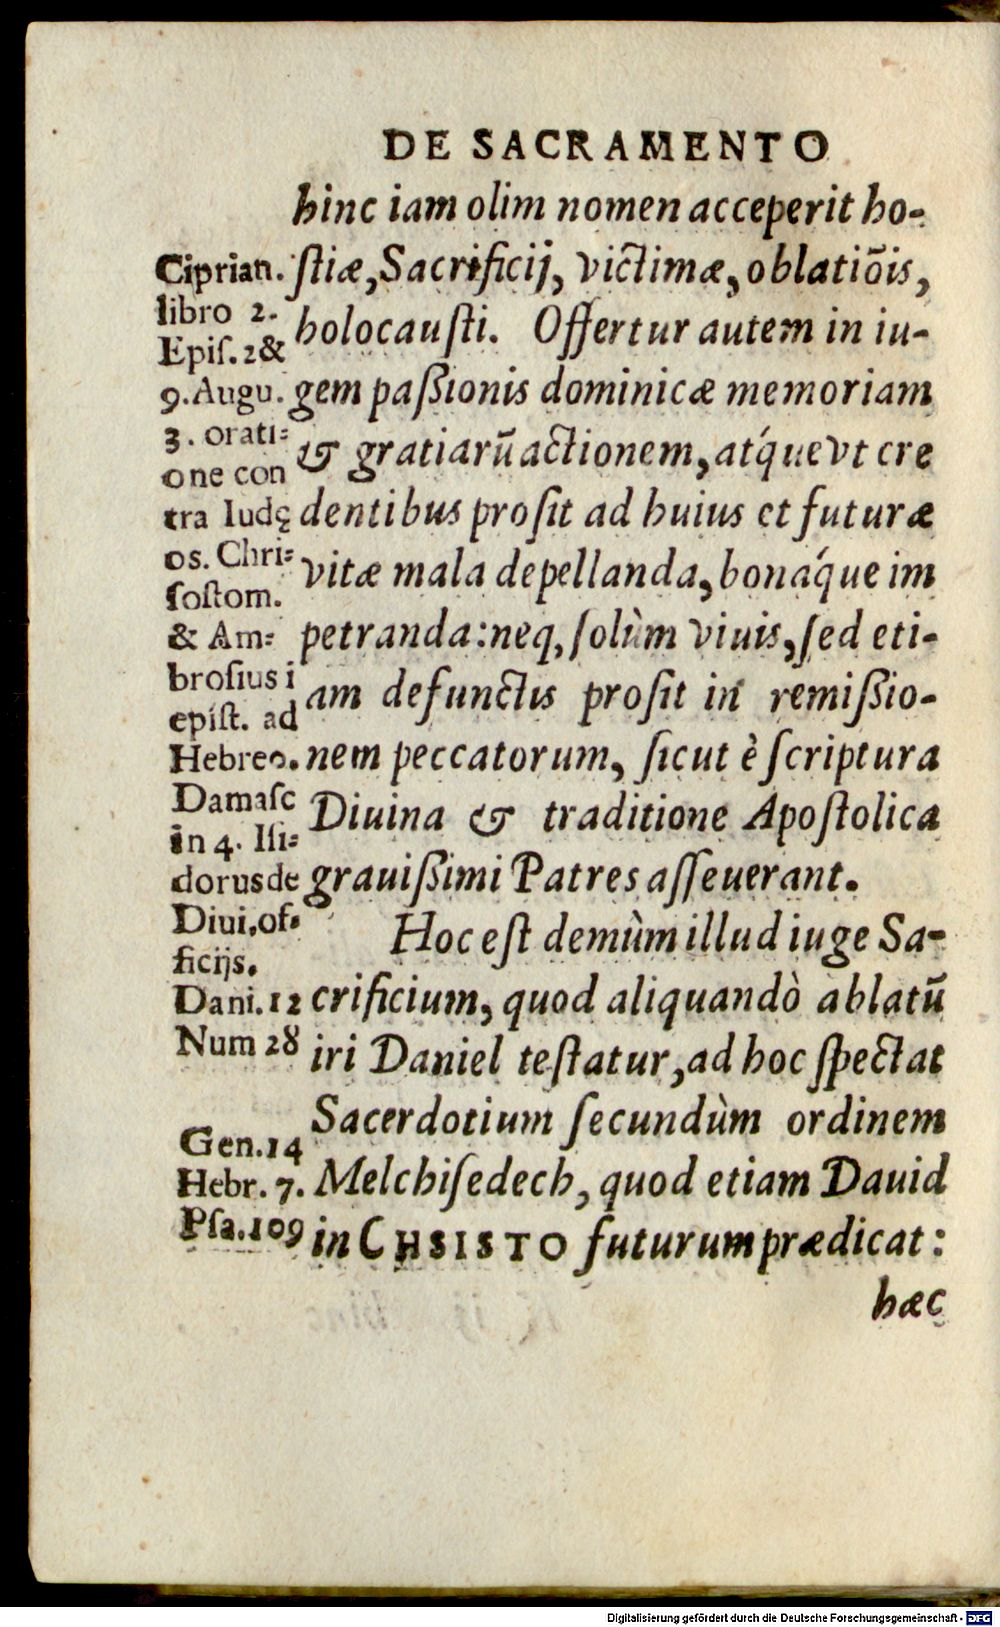 DE SACRAMENTO
hinc iam olim nomen acceperit ho-
ſtiæ, Sacrificij, victimæ, oblatiõis,
holocauſti. Offertur autem in iu-
gem paßionis dominicæ memoriam
& gratiarũ actionem, atq́ue vt cre
dentibus proſit ad huius et futuræ
vitæ mala depellanda, bonaq́ue im
petranda: neq, ſolùm viuis, ſed eti-
am defunctis proſit in remißio-
nem peccatorum, ſicut è ſcriptura
Diuina & traditione Apoſtolica
grauißimi Patres aſſeuerant.
Hoc eſt demùm illud iuge Sa-
crificium, quod aliquandò ablatũ
iri Daniel teſtatur, ad hoc ſpectat
Sacerdotium ſecundùm ordinem
Melchiſedech, quod etiam Dauid
in CHSISTO futurum prædicat:
hæc
Ciprian.
libro 2.
Epiſ. 2 &
9. Augu.
3. orati-
one con
tra Iudę
os. Chri-
ſoſtom.
& Am-
broſius i
epiſt. ad
Hebreo.
Damaſc
in 4. Iſi-
dorus de
Diui, of-
ficijs.
Dani. 12
Num 28
Gen. 14
Hebr. 7.
Pſa. 109
Digitalisierung gefördert durch die Deutsche Forschungsgemeinschaft - DFG